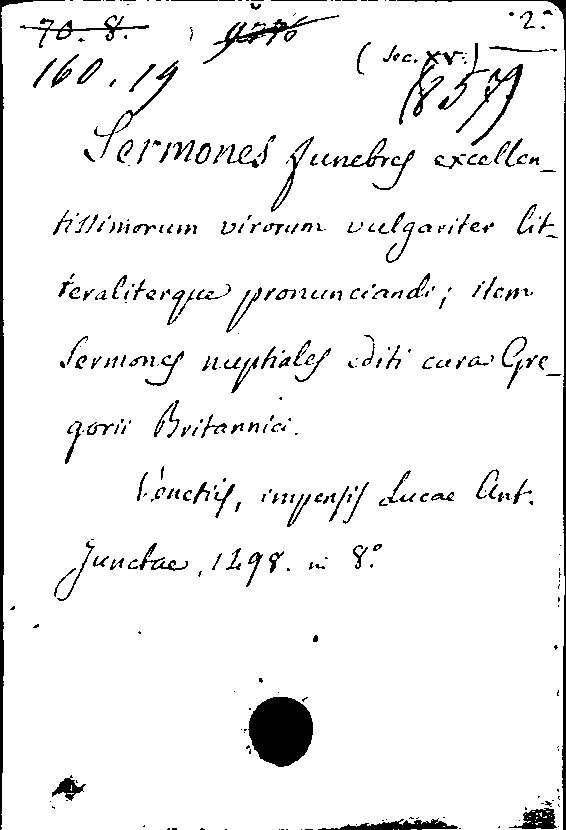 70. 8. 9276 2.
160.19 (sec. XV.)
(857)
Sermones funebres excellen-
tissimorum virorum vulgariter lit-
teraliterque pronunciandi; item
Sermones nuptiales editi cura Gre-
gorii Britannici.
Venetiis, impensis Lucae Ant.
Junctae, 1498. in 8.°